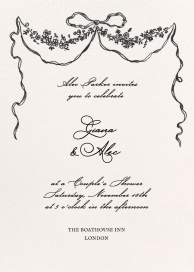 Alec Parker invites
you to celebrate
Giana
& Alec
at a Couple's Shower
Saturday, November 10th
at 5 o'clock in the afternoon
THE BOATHOUSE INN
LONDON